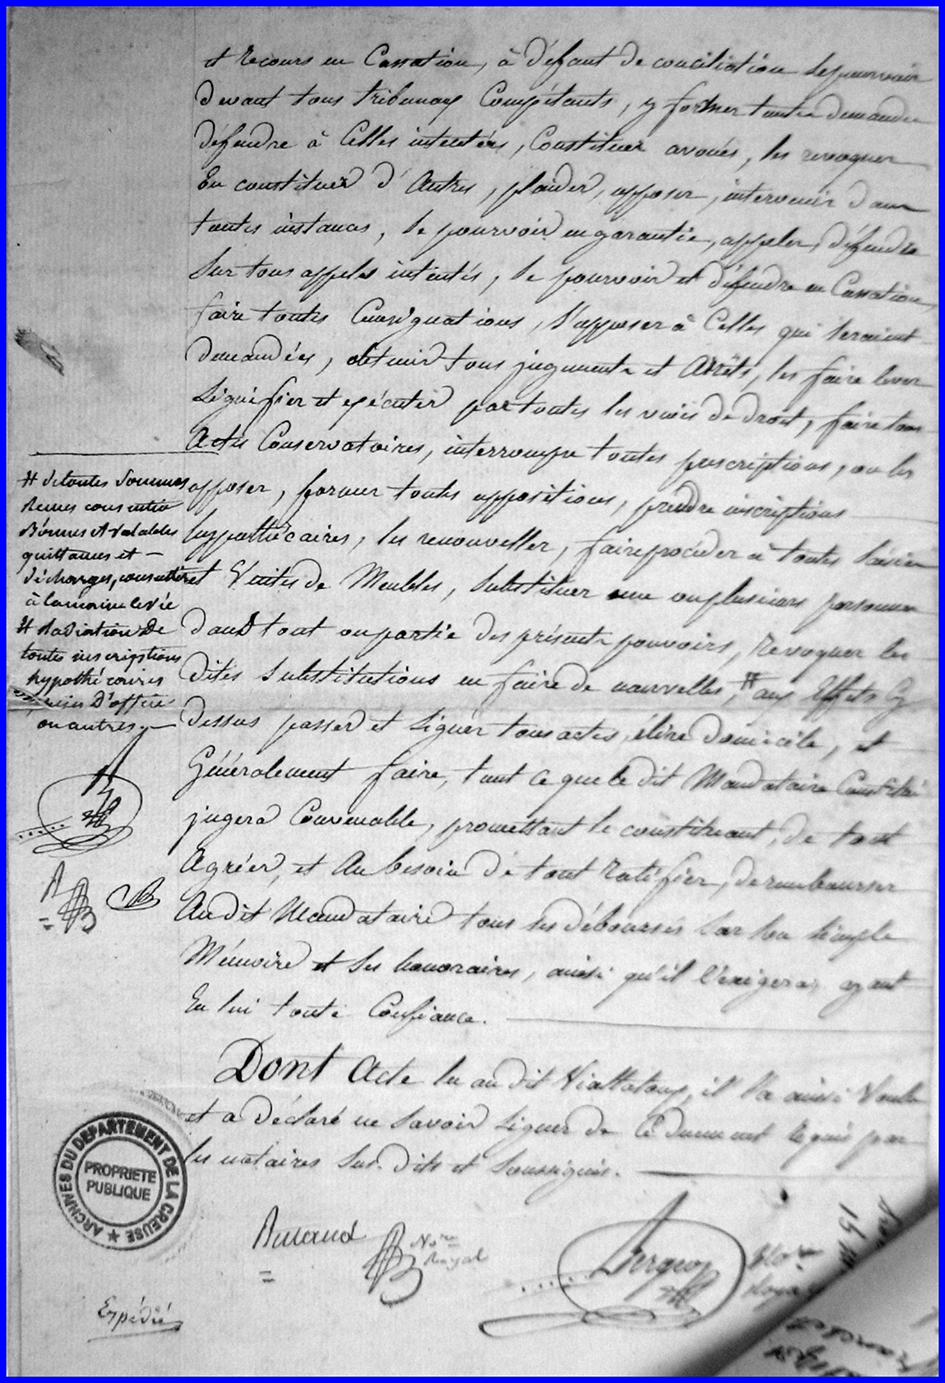 et recours en Cassation, à défaut de conciliation se pourvoir
devant tous tribunaux Compétants, y former toutes demandes
défendre à Celles intentées, Constituer avoués, les revoquer
En constituer d'Autres, plaider, opposer, intervenir dans
toutes instances, se pourvoir en garantie, appeler, défendre
sur tous appels intentés, se pourvoir et défendre en Cassation
faire toutes Consignations, s'opposer à Celles qui seraient
demandées, obtenir tous jugements et Arrêts, les faire lever
signifier et exécuter par toutes les voies de droit, faire tous
Actes Conservatoires, interrompre toutes prescriptions, ou les
opposer, former toutes oppositions, prendre inscriptions
hypothécaires, les renouveller, faire procéder à toutes saisies
et Ventes de Meubles, substituer une ou plusieurs personnes
dans tout ou partie des présents pouvoirs, revoquer les
dites substitutions en faire de nouvelles, # aux Effets Cy
dessus passer et signer tous actes, élire domicile, et
Généralement faire, tout ce que le dit Mandataire Constitué
jugera Convenable, promettant le constituant, de tout
Agréer, et Au besoin de tout ratifier, de rembourser
Au dit Mandataire tous ses déboursés sur son simple
Mémoire et ses honoraires, ainsi qu'il l'exigera, ayant
En lui toute Confiance.
Dont Acte lu au dit Viallatoux, il l'a ainsi Voulu
et a déclaré ne savoir signer de Ce dument requis par
les notaires sus-dits et soussignés.
# de toutes sommes
Reçues consentir
Bonnes et valables
quittances et
décharges, consentir
à la main levée
# Radiation De
toutes inscriptions
hypothécaires
D'office
ou autres
ARCHIVES DU DEPARTEMENT DE LA CREUSE
PROPRIETE
PUBLIQUE
Nre
Royal
Nore
Royal
Expédié